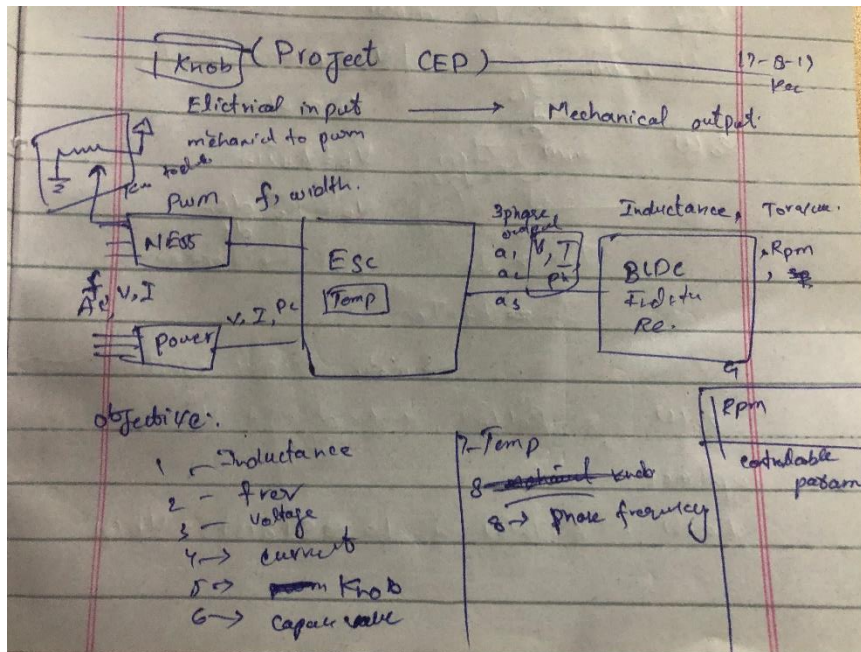 Knob (Project CEP)
17-8-17
Elictrical input → Mechanical output.
mechanid to pwm
Pwm f, width.
NE55
f V, I
Power
V, I, Pc
ESC
Temp
3phase
output
a1
a2
a3
V, I
ph
Inductance, Toraque.
BLDC
Re.
, Rpm
objective:
1 - Inductance
2 - frev
3 - voltage
4 → current
5 → Knob
6 → capac valve
7 - Temp
8 knob
8 → phase frequency
Rpm
controlable
param